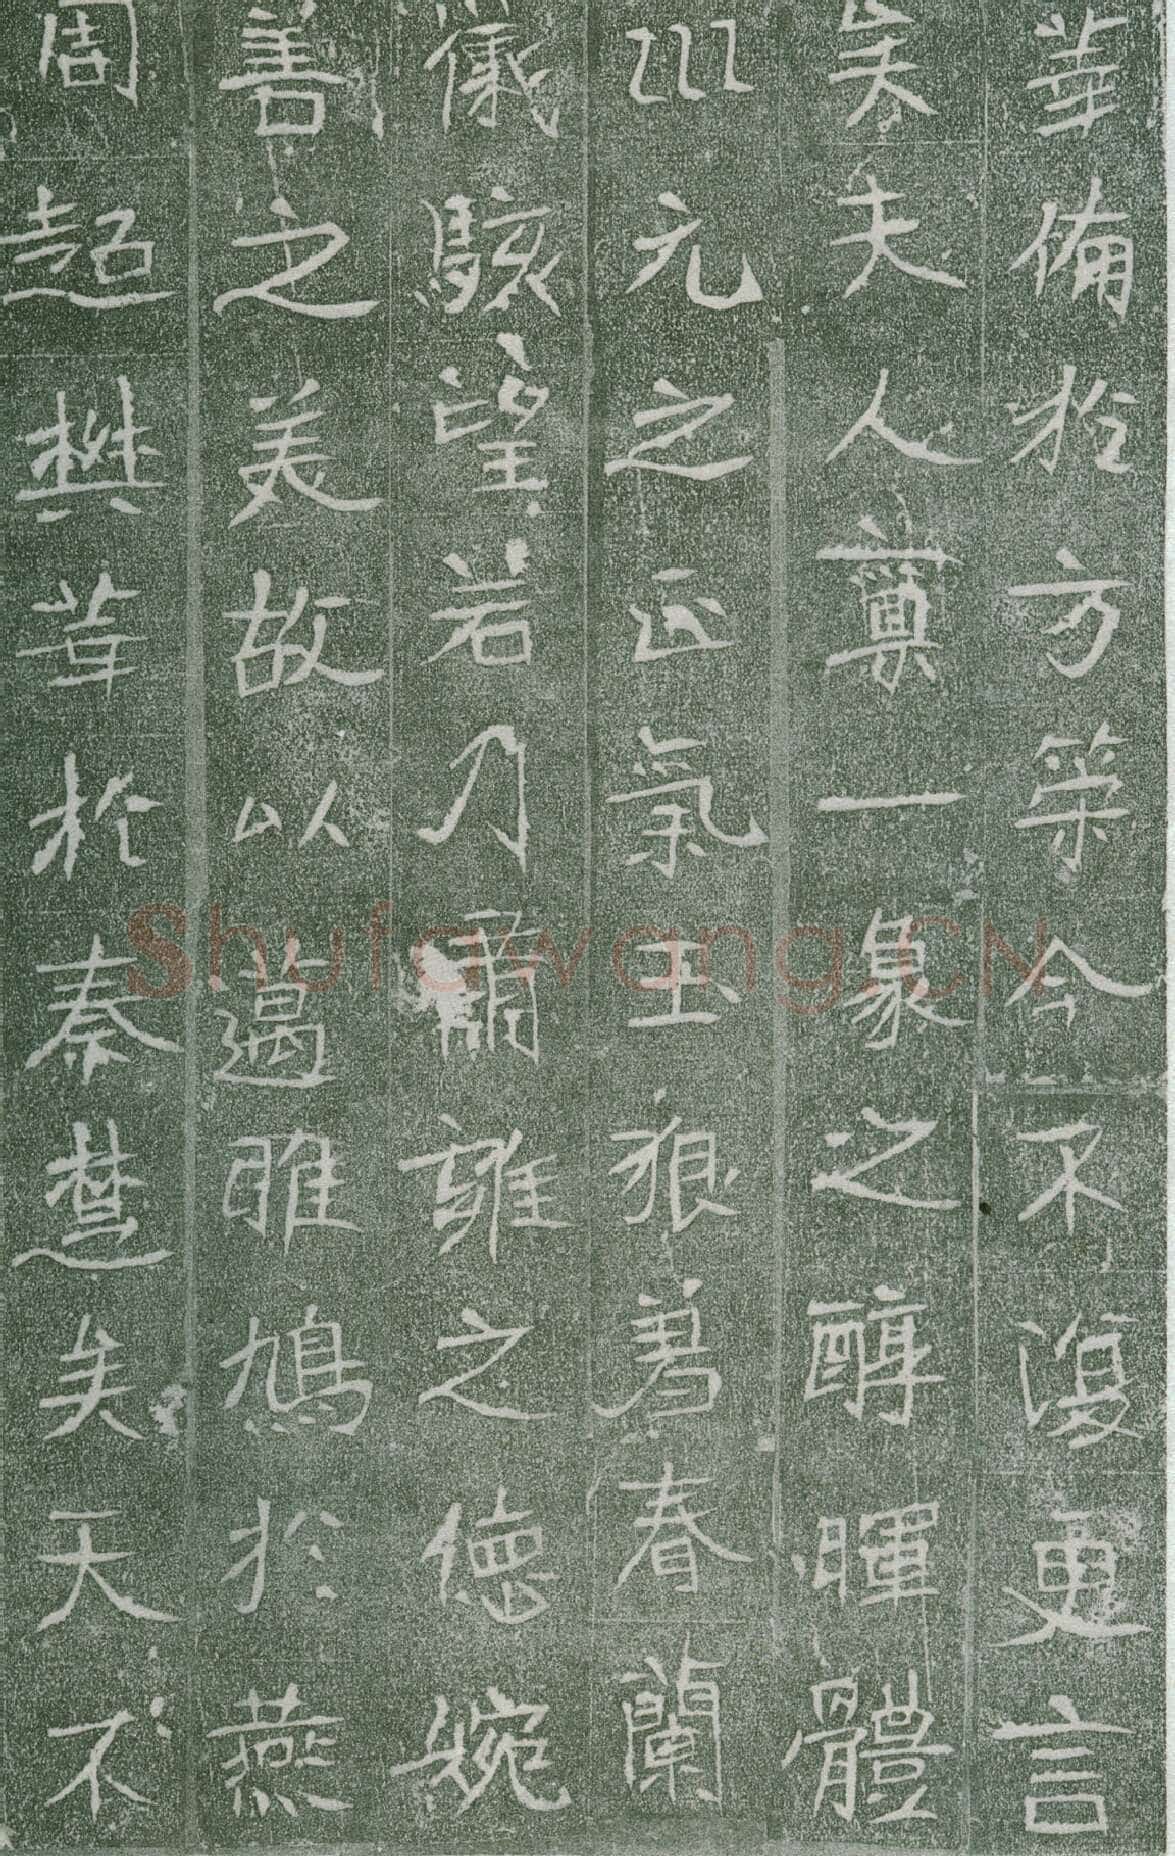 華備於方策今不復更言
矣夫人一象之醇暉體
巛元之正氣玉春蘭
儀駭望若乃肅雍之德婉
善之美故以邁雎鳩於燕
周超樊莘於秦楚矣天不
Shufawang.CN